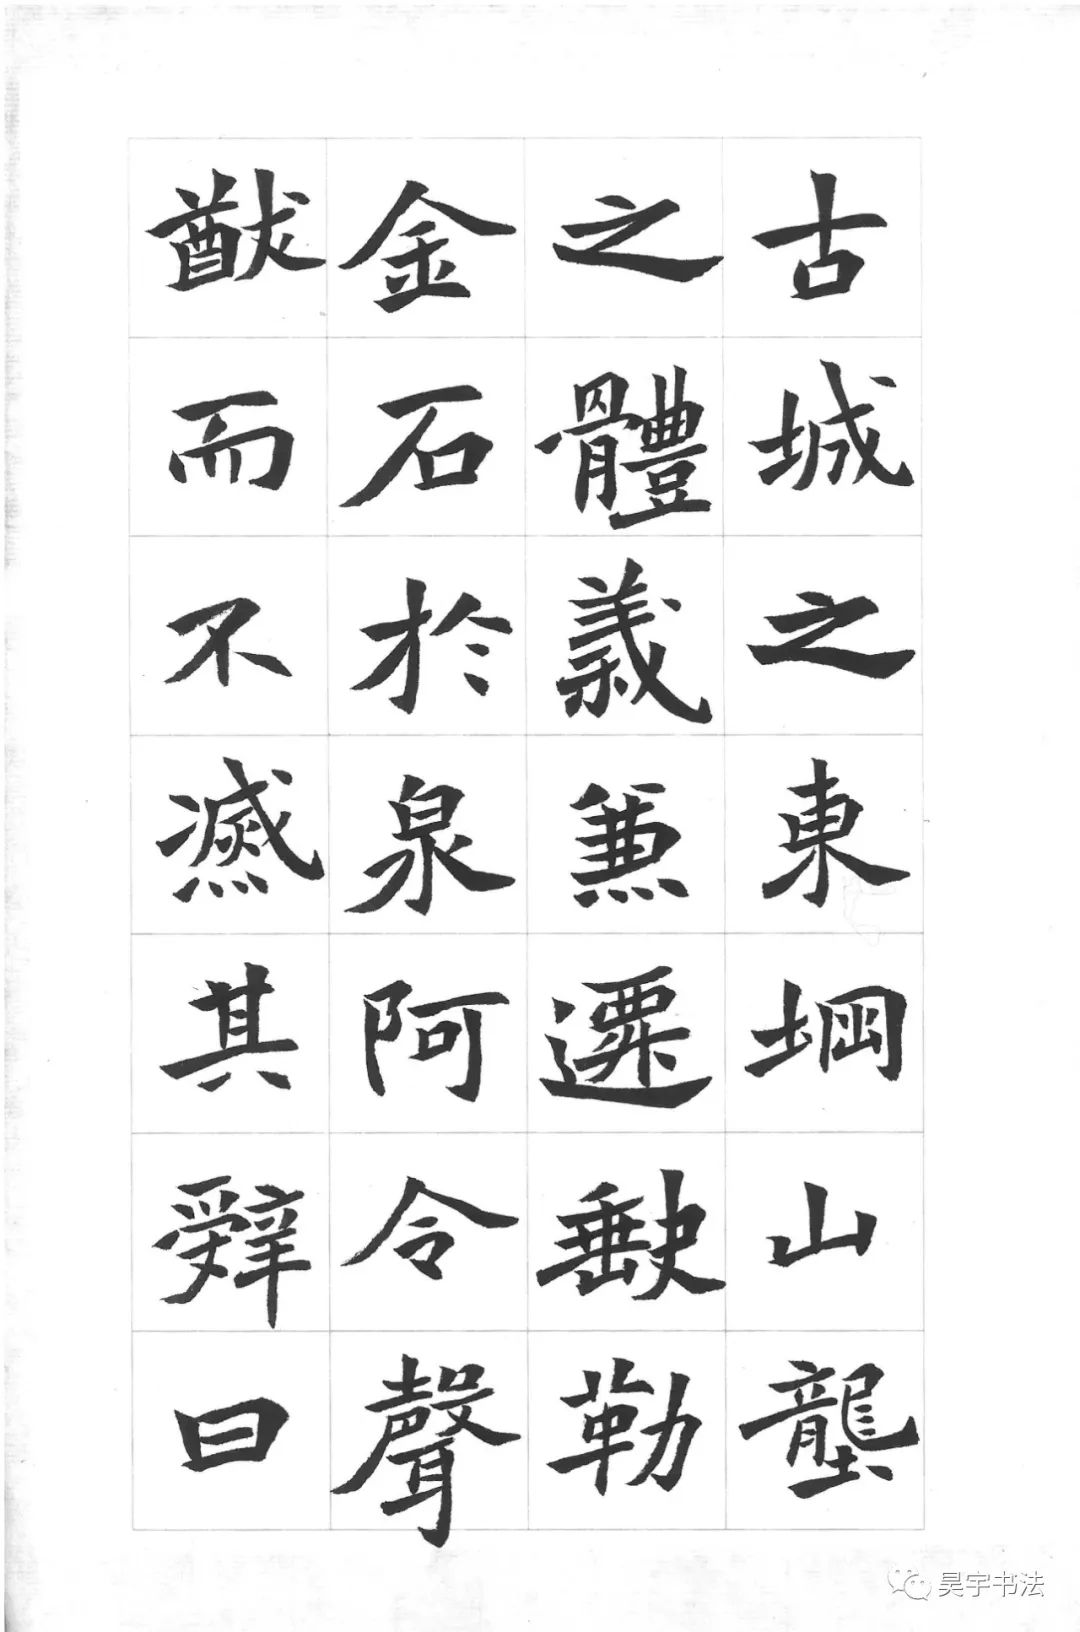 古城之東堈山壟
之體義兼遷勒
金石於泉阿令聲
猷而不滅其辭曰
昊宇书法